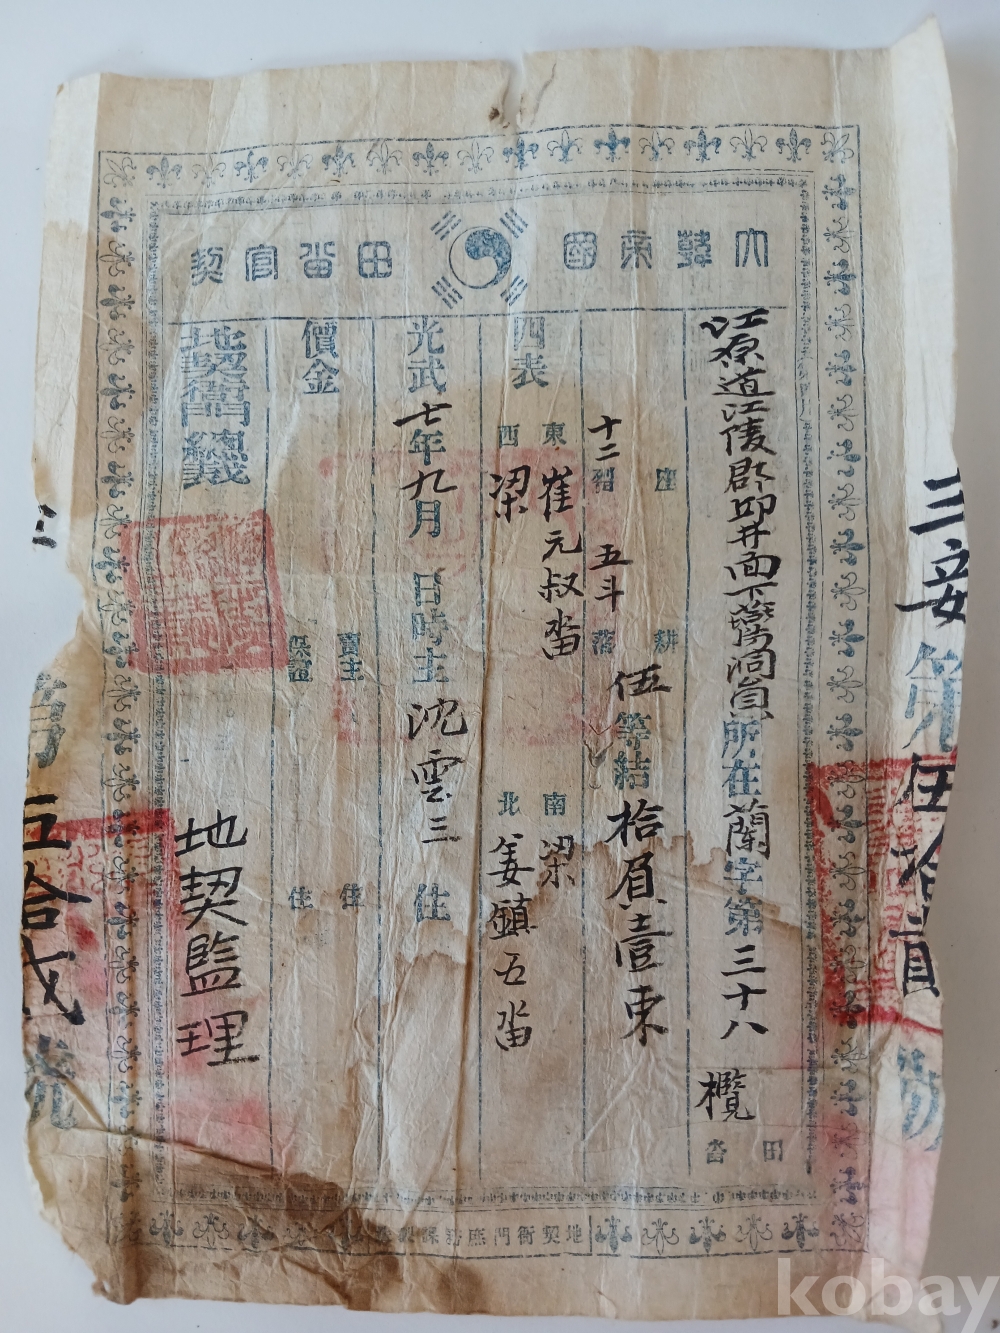 大韓帝國 田畓官契
江原道江陵郡邱井面下鶯洞員所在蘭字第三十八
欖
田
畓
座
耕
十二
五斗
落
伍等結拾負壹束
四表
東 崔元叔畓
西 梁
南 梁
北 姜鎮五畓
光武七年九月 日時主沈雲三 住
價金
賣主 住
保證 住
地契衙門總裁
地契監理
地契衙門
第伍拾貳號
五拾
kobay